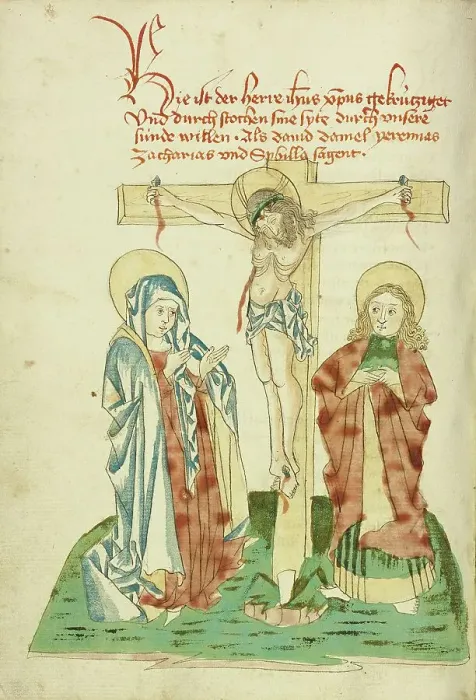 Hie ist der herre ihus xpus gekrútziget
Vnd durch stochen sine syte durch vnsere
súnde willen · Als dauid daniel yeremias
Zacharias vnd Sybilla sagent ·